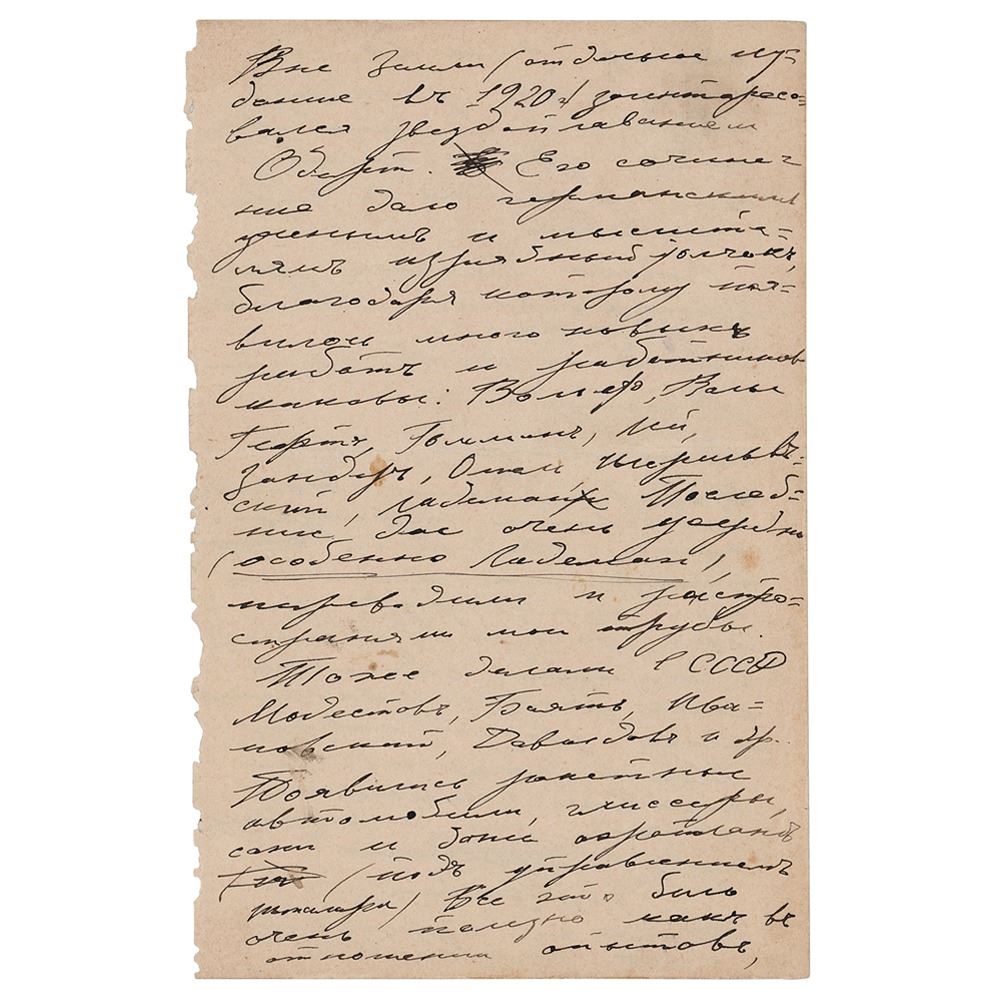 Вне Земли (отдельное из-
дание въ 1920 г.) заинтересо-
вался звездоплаванием
Оберт. Его сочине-
ние дало германским
ученымъ и мыслите-
лямъ изрядный толчокъ,
благодаря которому поя-
вилось много новыхъ
работъ и работниковъ
каковы: Вольф, Валье
Гефтъ, Гоманъ, Лей,
Зандеръ, Опель, Шершев-
ский, Ладеман. Послед-
ние два очень усердно
(особенно Ладеман),
переводили и распро-
страняли мои труды.
Тоже делали в СССР
Модестовъ, Египтъ,
Давыдовъ и др.
Появились ракетные
автомобили, глиссеры,
сани и даже аэропланъ
(подъ управлениемъ
) Все это было
очень полезно какъ въ
отношении опытовъ,